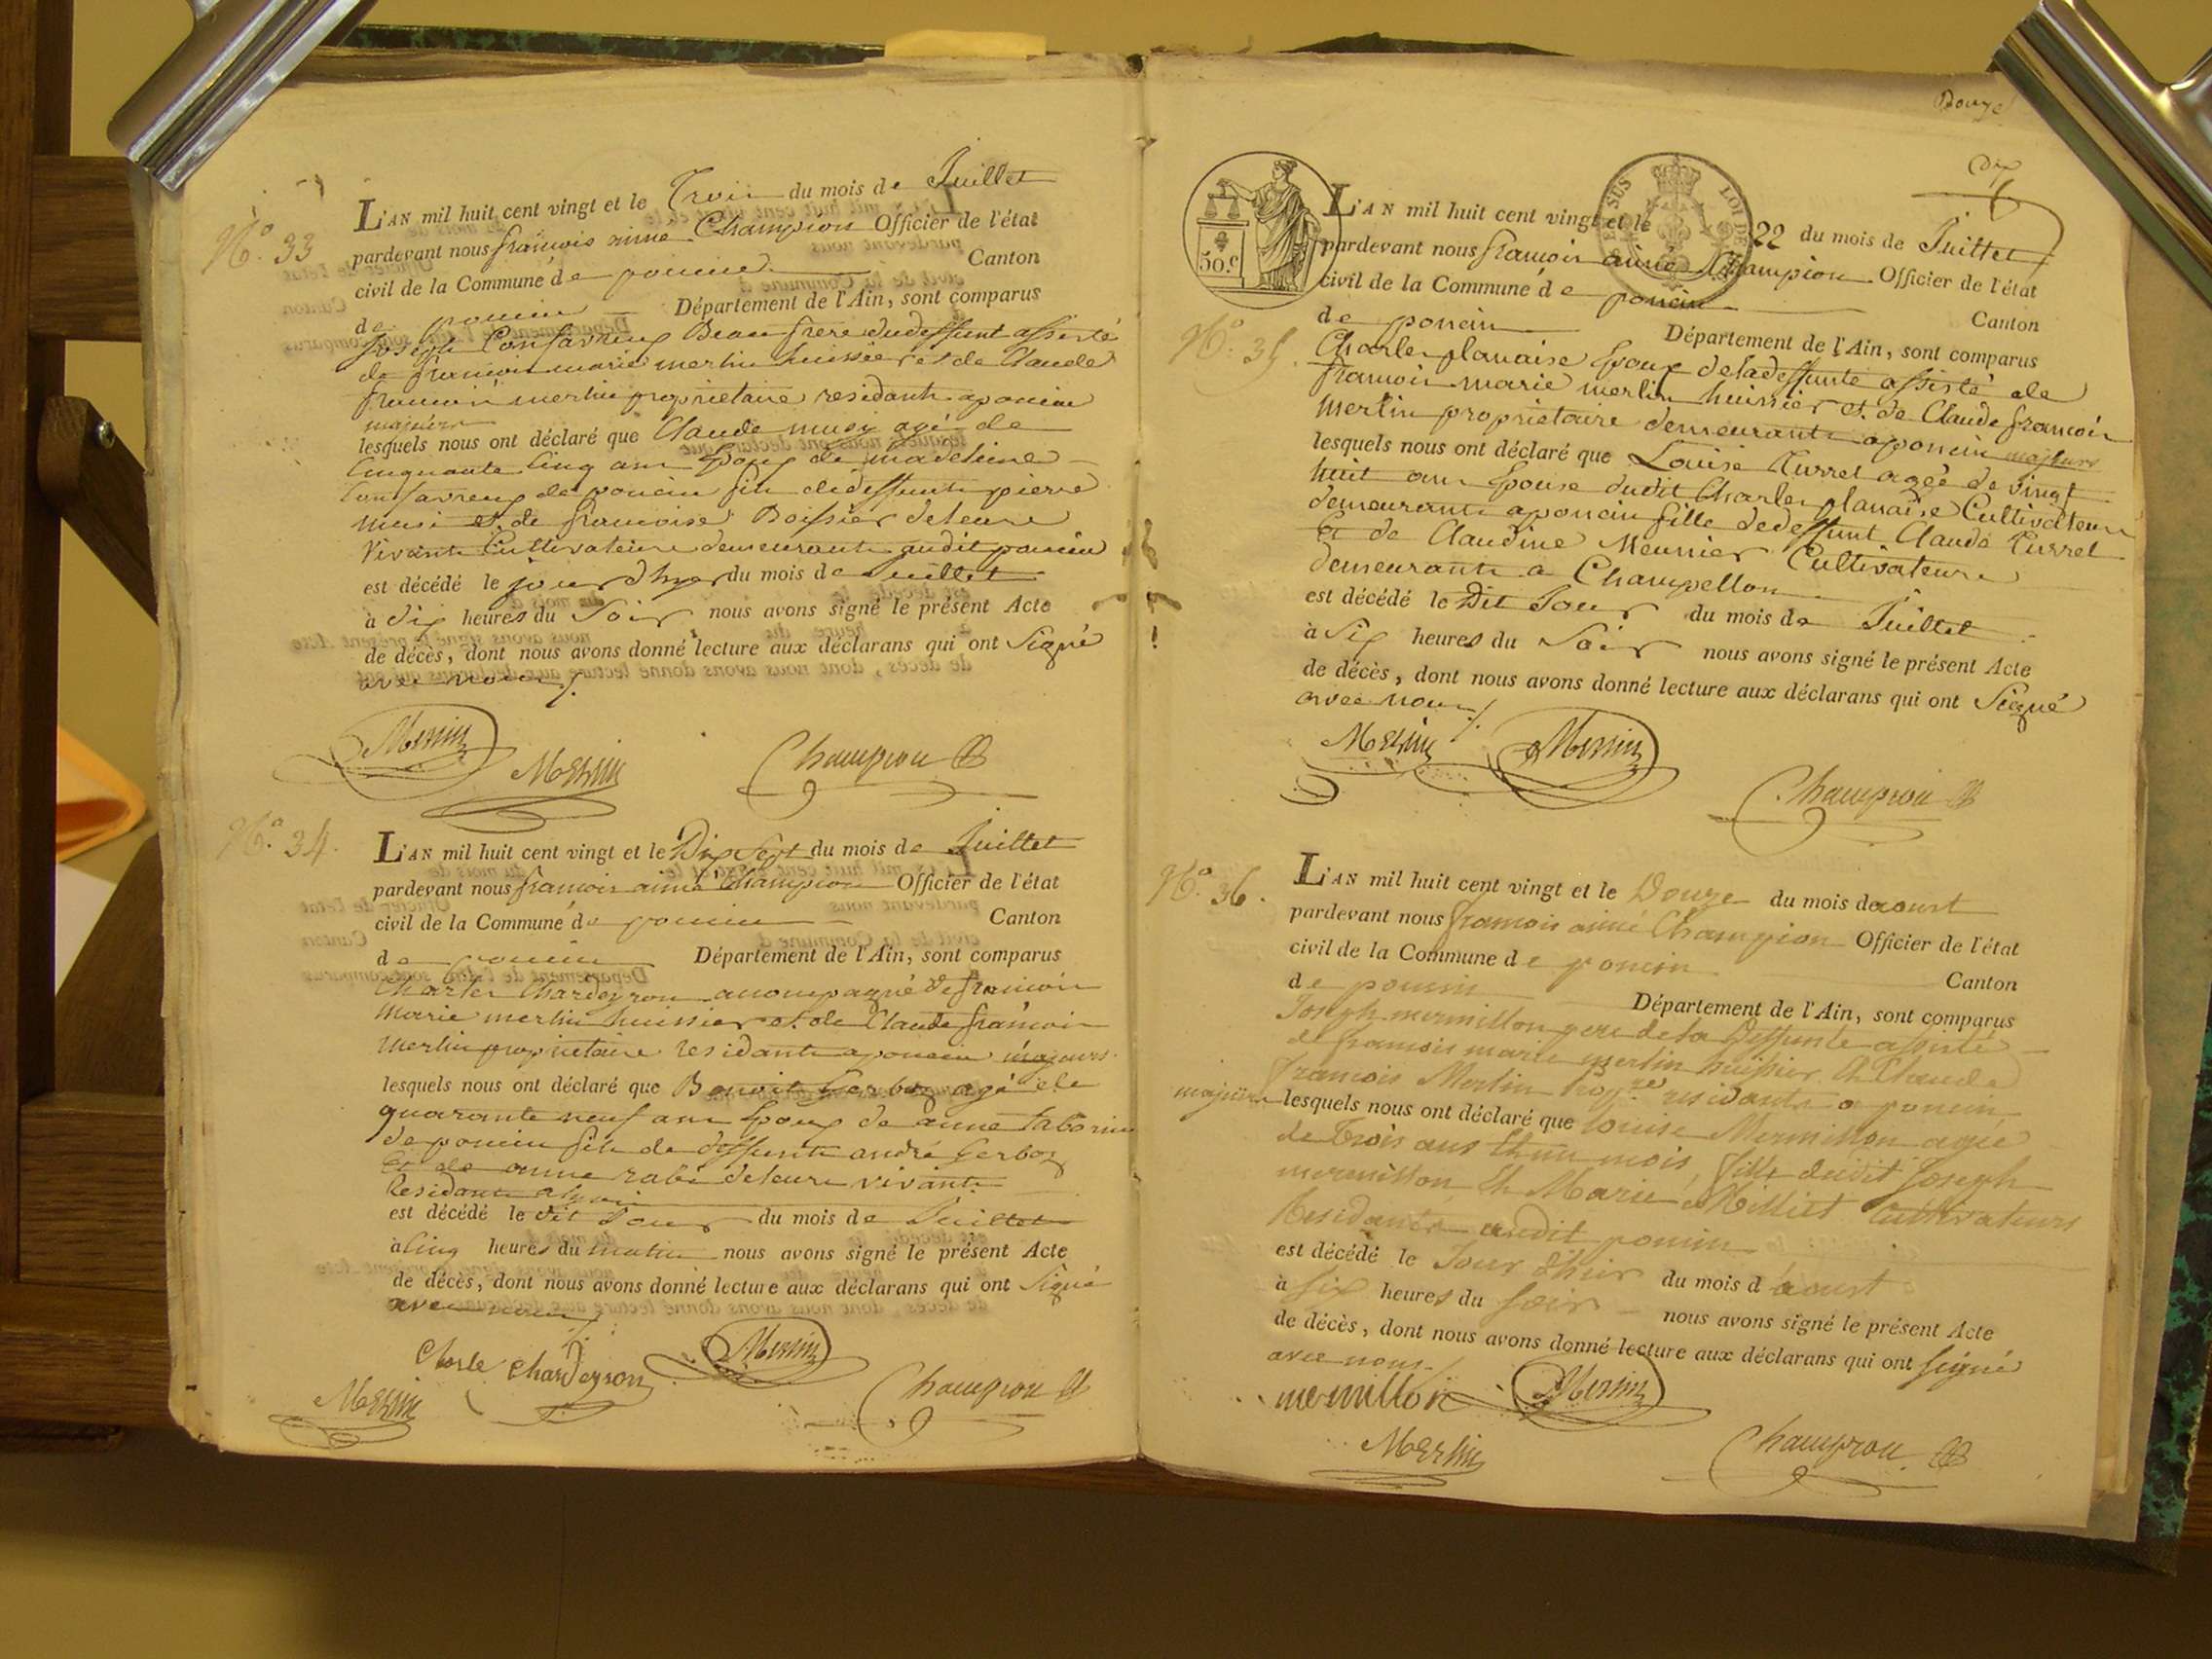 No. 33
L'AN mil huit cent vingt et le Trois du mois de Juillet
pardevant nous françois aimé Champion Officier de l'état
civil de la Commune de poncin Canton
de poncin Département de l'Ain, sont comparus
Joseph Confavreux Beau frere du deffunt assisté
de francois marie merlin huissier et de Claude
francois merlin proprietaire residants a poncin
majeurs
lesquels nous ont déclaré que Claude musi agé de
Cinquante Cinq ans Epoux de madeleine
Confavreux de poncin fils de deffunts pierre
musi et de francoise Boissier de leurs
vivants Cultivateurs demeurants audit poncin
est décédé le jour d'hyer du mois de Juillet
à dix heures du Soir nous avons signé le présent Acte
de décès, dont nous avons donné lecture aux déclarans qui ont Signé
avec nous /.
Merlin
Merlin
Champion
No. 34.
L'AN mil huit cent vingt et le Dix Sept du mois de Juillet
pardevant nous francois aimé Champion Officier de l'état
civil de la Commune de poncin Canton
de poncin Département de l'Ain, sont comparus
Charles Chardeyron accompagné de francois
marie merlin huissier et de Claude francois
merlin proprietaire residants a poncin majeurs
lesquels nous ont déclaré que Benoit Gerboz agé de
quarante neuf ans Epoux de anne
de poncin fils de deffunts andré Gerboz
Et de anne de leurs vivants
Residants
est décédé le dit Jour du mois de Juillet
à Cinq heures du matin nous avons signé le présent Acte
de décès, dont nous avons donné lecture aux déclarans qui ont Signé
avec nous /.
Charle Chardeyron
Merlin
Merlin
Champion
Douze
Dix
50.c
EN SUS
LOI DE
L'AN mil huit cent vingt et le 22 du mois de Juillet
pardevant nous francois aimé Champion Officier de l'état
civil de la Commune de poncin Canton
No. 35.
de poncin Département de l'Ain, sont comparus
Charles planaise Epoux de la deffunte assisté de
francois marie merlin huissier et de Claude francois
merlin proprietaire demeurants a poncin majeurs
lesquels nous ont déclaré que Louise Curret agée de vingt
huit ans Epouse dudit Charles planaise Cultivateur
demeurants a poncin fille de deffunt Claude Curret
Et de Claudine Meunier Cultivateurs
demeurants a Champellon
est décédé le Dit Jour du mois de Juillet
à Six heures du Soir nous avons signé le présent Acte
de décès, dont nous avons donné lecture aux déclarans qui ont Signé
avec nous /.
Merlin
Merlin
Champion
No. 36.
L'AN mil huit cent vingt et le Douze du mois de aoust
pardevant nous francois aimé Champion Officier de l'état
civil de la Commune de poncin Canton
de poncin Département de l'Ain, sont comparus
Joseph mermillon pere de la Deffunte assisté
de francois marie merlin huissier Et Claude
francois Merlin prop.re residants a poncin
majeurs
lesquels nous ont déclaré que louise Mermillon agée
de trois ans Et un mois, fille dudit Joseph
mermillon Et Marie Milliet Cultivateurs
Residants audit poncin
est décédé le Jour d'hier du mois d'aoust
à Six heures du Soir nous avons signé le présent Acte
de décès, dont nous avons donné lecture aux déclarans qui ont Signé
avec nous ./
mermillon
Merlin
Merlin
Champion